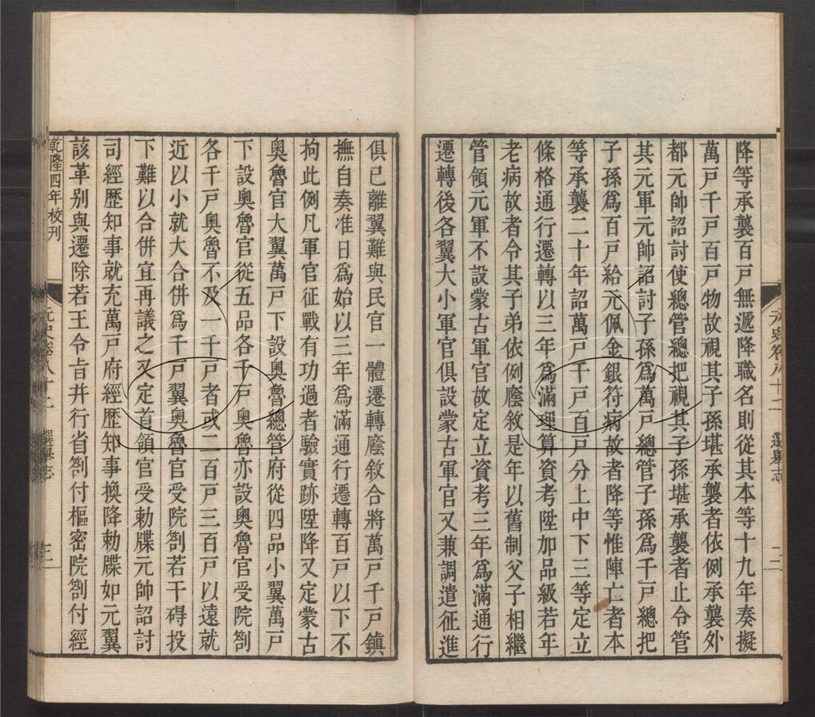 降等承襲百戶無遞降職名則從其本等十九年奏擬
萬戶千戶百戶物故視其子孫堪承襲者依例承襲外
都元帥詔討使總管總把視其子孫堪承襲者止令管
其元軍元帥詔討子孫爲萬戶總管子孫爲千戶總把
子孫爲百戶給元佩金銀符病故者降等惟陣亡者本
等承襲二十年詔萬戶千戶百戶分上中下三等定立
條格通行遷轉以三年爲滿理算資考陞加品級若年
老病故者令其子弟依例廕敘是年以舊制父子相繼
管領元軍不設蒙古軍官故定立資考三年爲滿通行
遷轉後各翼大小軍官俱設蒙古軍官又兼調遣征進
元史卷八十二 選舉志 二
俱已離翼難與民官一體遷轉廕敘合將萬戶千戶鎮
撫自奏准日爲始以三年爲滿通行遷轉百戶以下不
拘此例凡軍官征戰有功過者驗實跡陞降又定蒙古
奧魯官大翼萬戶下設奧魯總管府從四品小翼萬戶
下設奧魯官從五品各千戶奧魯亦設奧魯官受院劄
各千戶奧魯不及一千戶者或二百戶三百戶以遠就
近以小就大合併爲千戶翼奧魯官受院劄若干礙投
下難以合併宜再議之又定首領官受勅牒元帥詔討
司經歷知事就充萬戶府經歷知事換降勅牒如元翼
該革別與遷除若王令旨幷行省劄付樞密院劄付經
乾隆四年校刊
元史卷八十二 選舉志 三